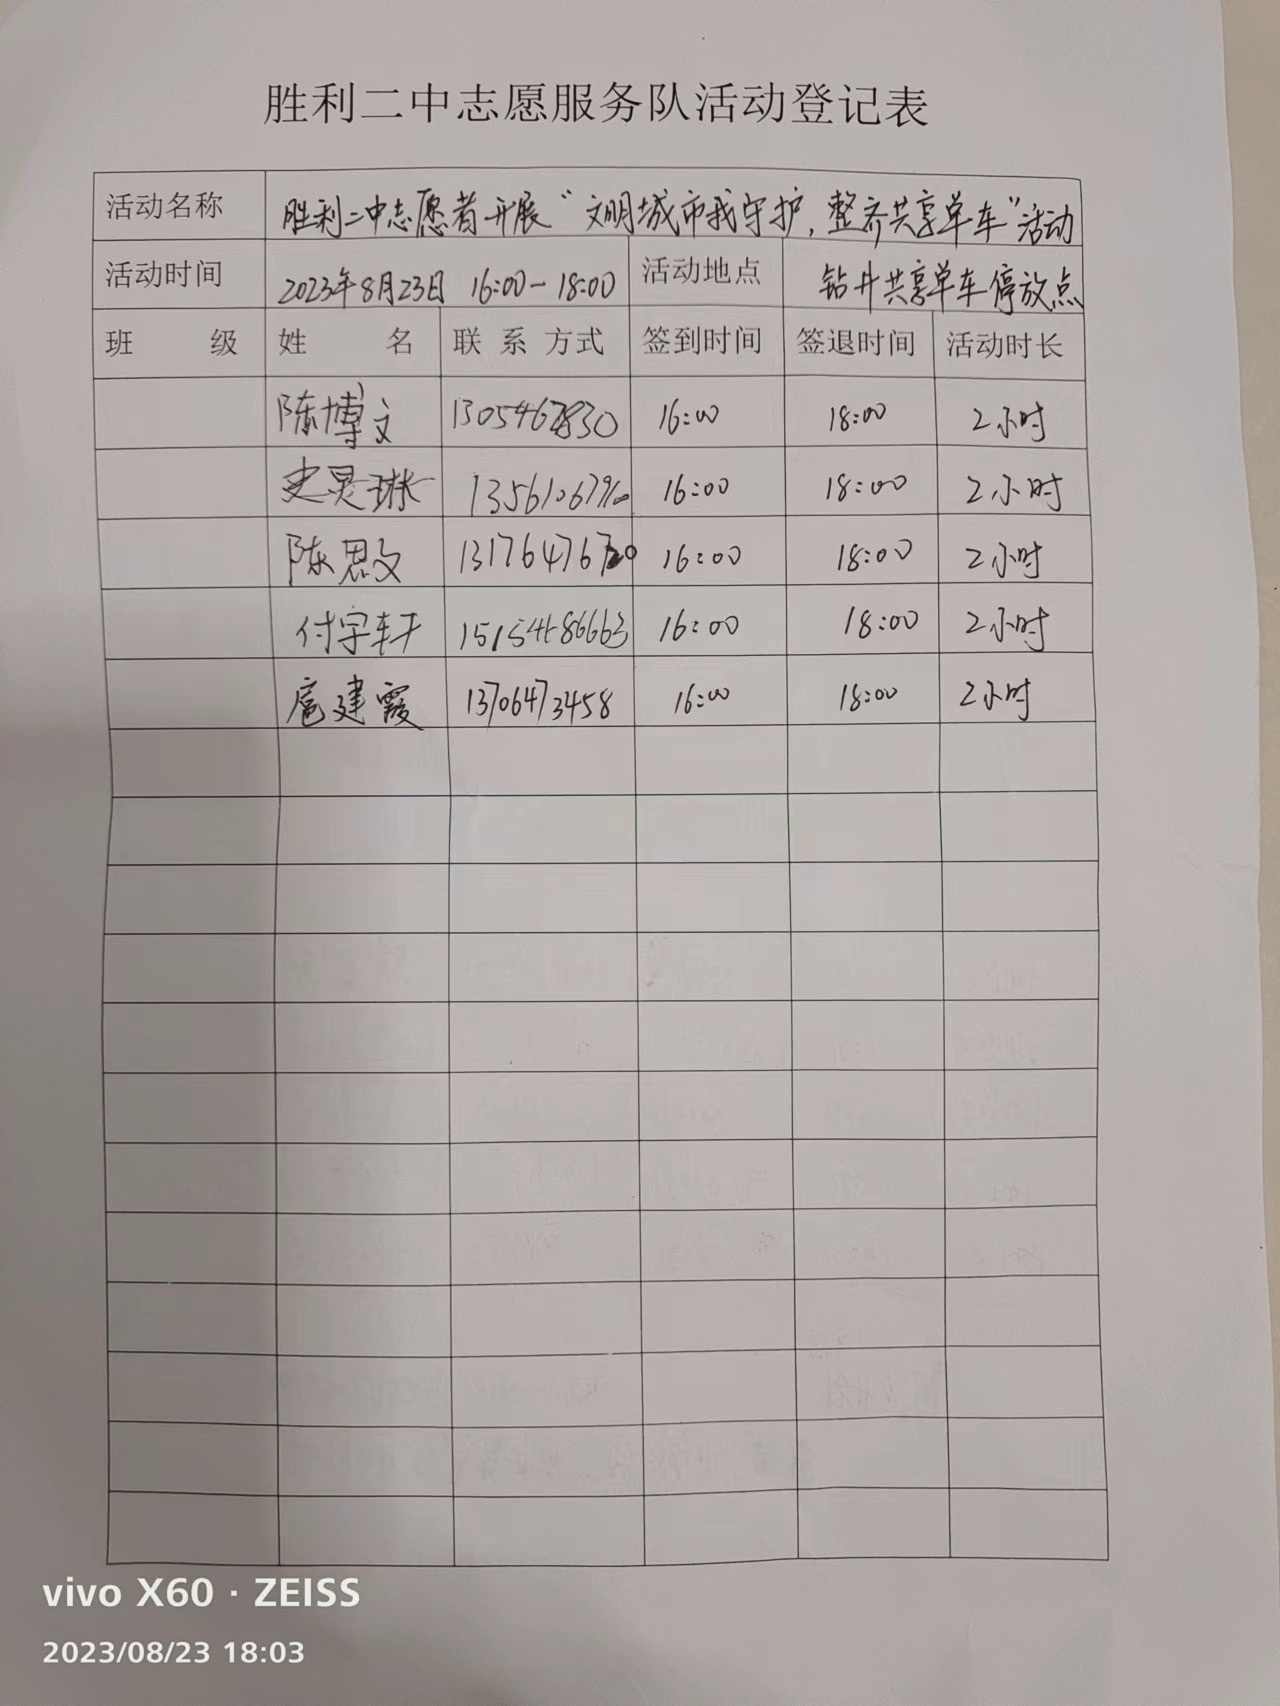 胜利二中志愿服务队活动登记表
活动名称 胜利二中志愿者开展“文明城市我守护，整齐共享单车”活动
活动时间 2023年8月23日 16:00-18:00 活动地点 钻井共享单车停放点
班级 姓名 联系方式 签到时间 签退时间 活动时长
陈博文 16:00 18:00 2小时
史灵琳 16:00 18:00 2小时
陈思文 16:00 18:00 2小时
付宇轩 15154686663 16:00 18:00 2小时
扈建霞 13706473458 16:00 18:00 2小时
vivo X60 · ZEISS
2023/08/23 18:03